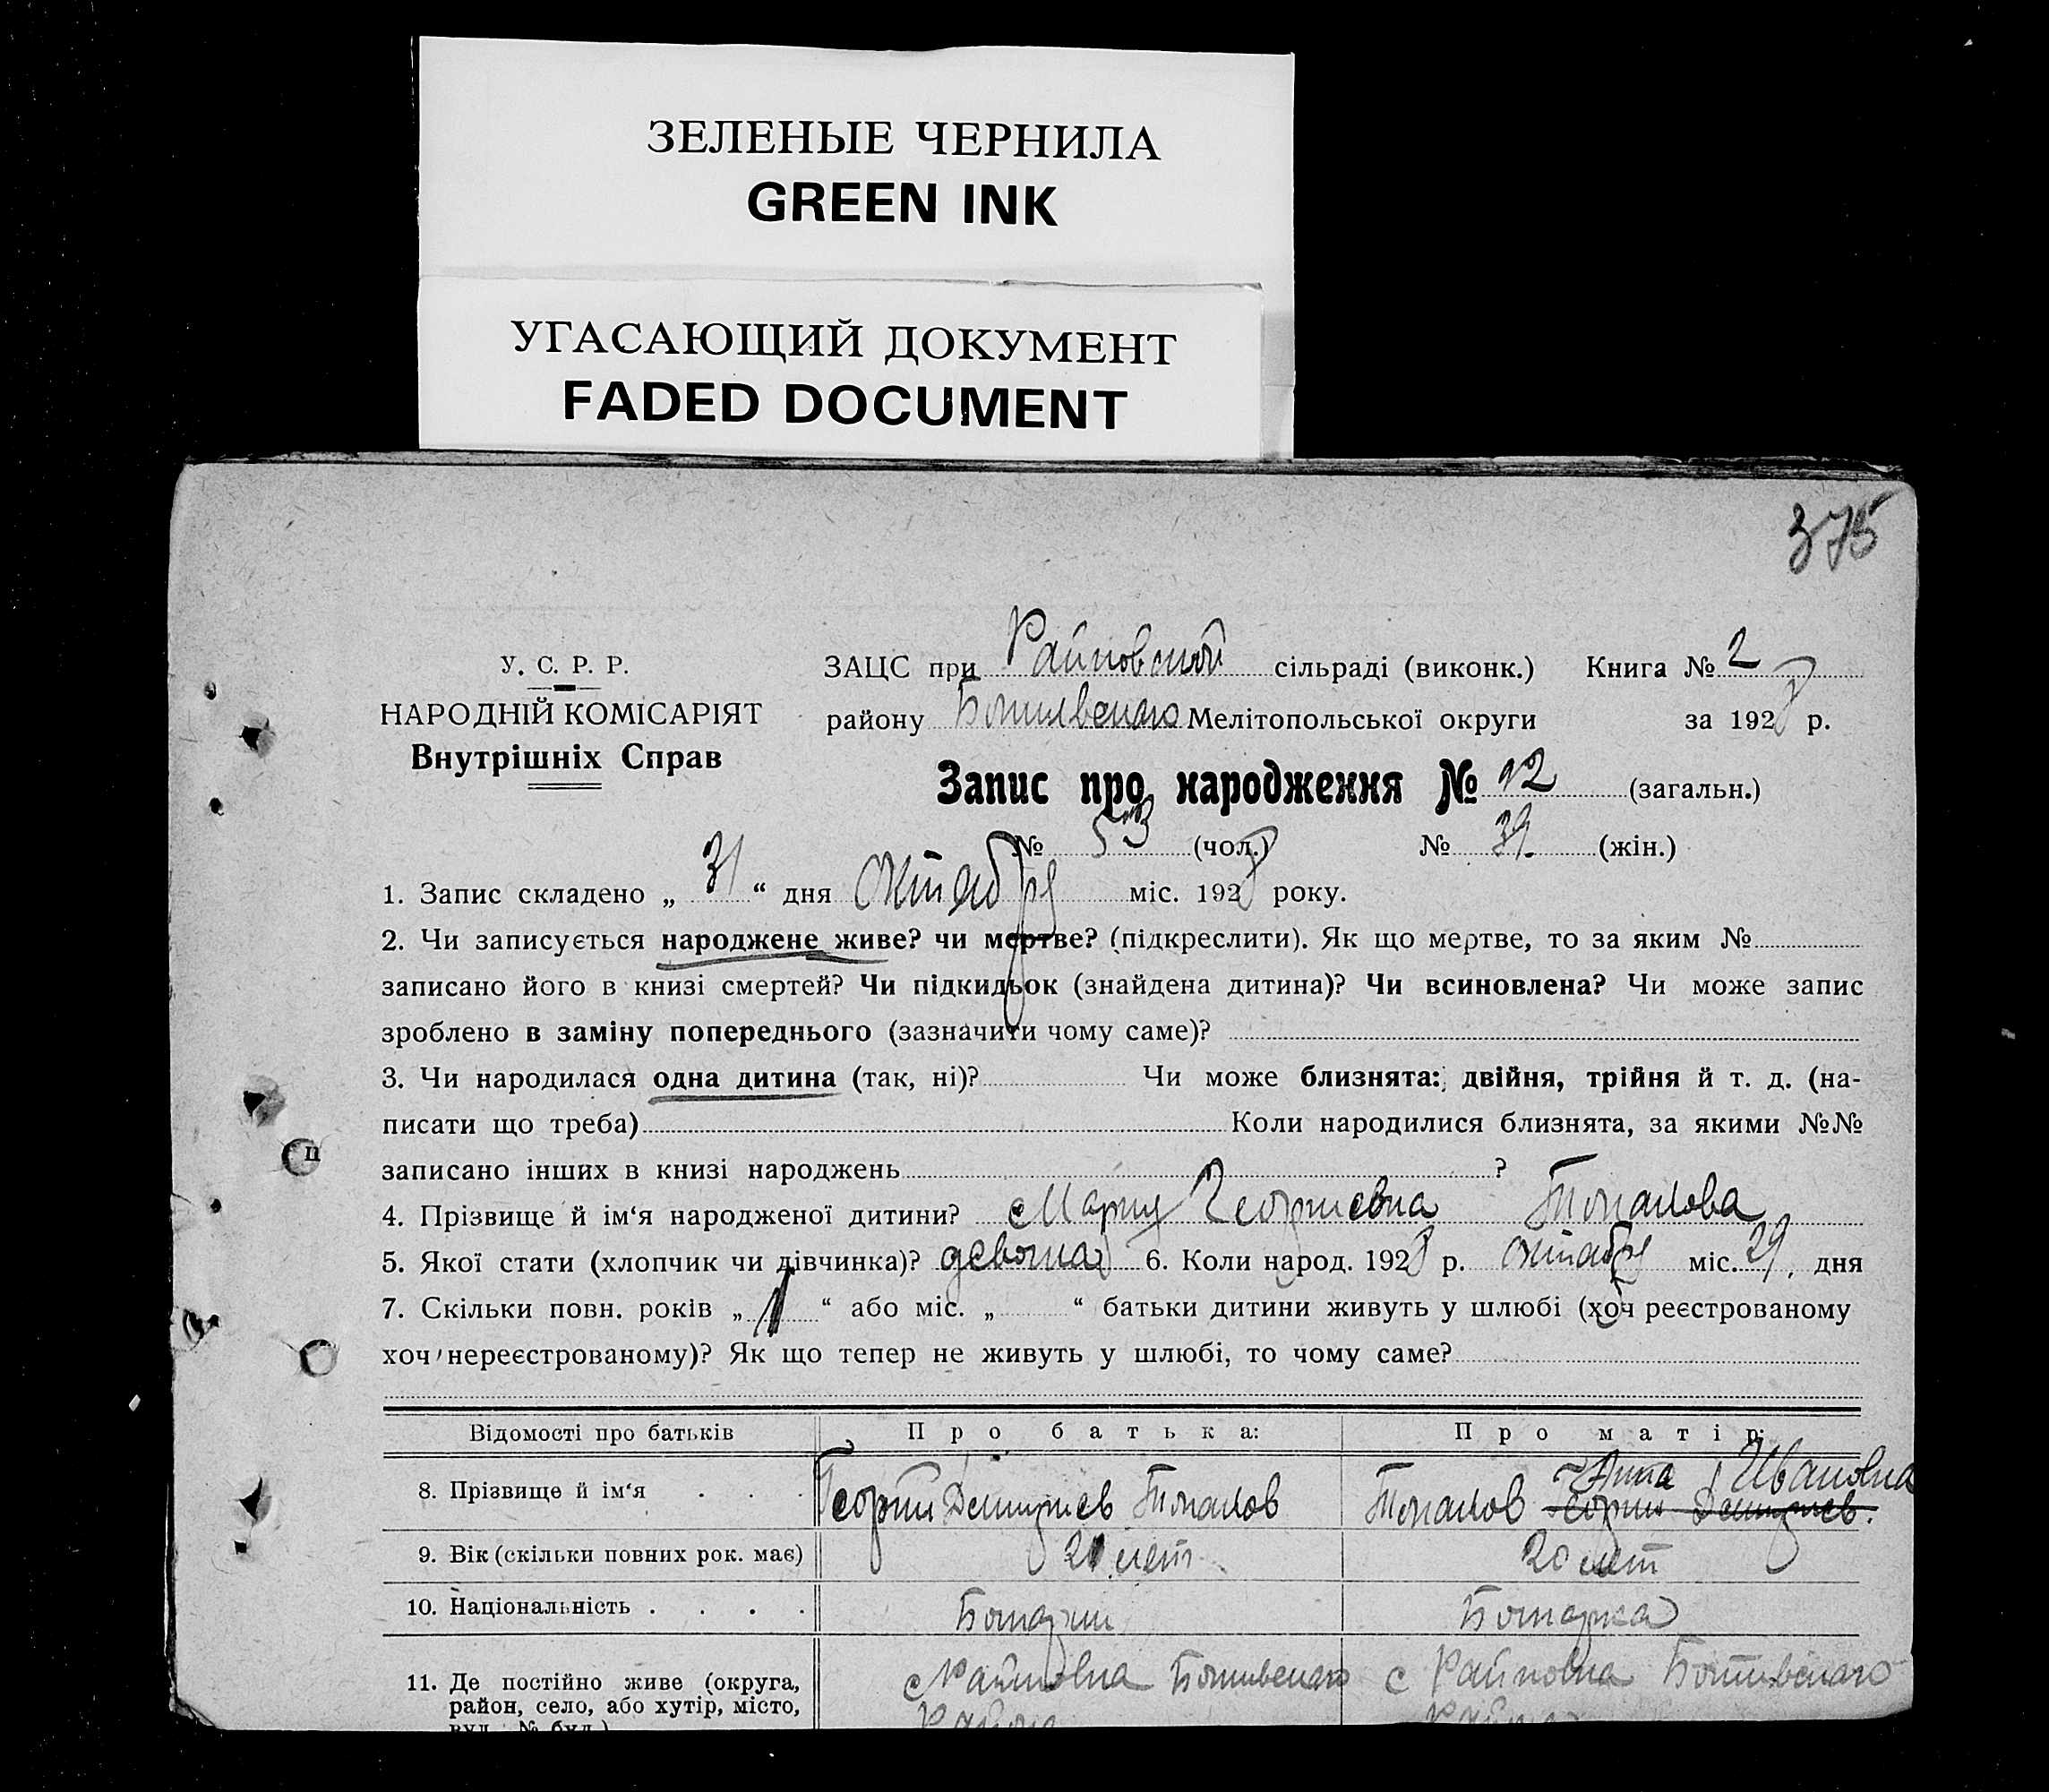 ЗЕЛЕНЫЕ ЧЕРНИЛА
GREEN INK
УГАСАЮЩИЙ ДОКУМЕНТ
FADED DOCUMENT
375
У. С. Р. Р.
НАРОДНІЙ КОМІСАРІЯТ
Внутрішніх Справ
ЗАЦС при Райновской сільраді (виконк.) Книга № 2
району Мелітопольської округи за 1928 р.
Запис про народження № 92 (загальн.)
№ 53 (чол.) № 39 (жін.)
1. Запис складено „ 31 “ дня Октября міс. 1928 року.
2. Чи записується народжене живе? чи мертве? (підкреслити). Як що мертве, то за яким №
записано його в книзі смертей? Чи підкидьок (знайдена дитина)? Чи всиновлена? Чи може запис
зроблено в заміну попереднього (зазначити чому саме)?
3. Чи народилася одна дитина (так, ні)? Чи може близнята: двійня, трійня й т. д. (на-
писати що треба) Коли народилися близнята, за якими №№
записано інших в книзі народжень ?
4. Прізвище й ім‘я народженої дитини? Мария Георгиевна
5. Якої стати (хлопчик чи дівчинка)? 6. Коли народ. 1928 р. октября міс. 29, дня
7. Скільки повн. років „ “ або міс. „ “ батьки дитини живуть у шлюбі (хоч реєстрованому
хоч нереєстрованому)? Як що тепер не живуть у шлюбі, то чому саме?
Відомості про батьків Про батька: Про матір:
8. Прізвище й ім‘я Георги Анна Ивановна
9. Вік (скільки повних рок. має) 21 лет 20 лет
10. Національність Болгарин Болгарка
11. Де постійно живе (округа, с Райновка с Райновка
район, село, або хутір, місто, Района
вул., № буд.)